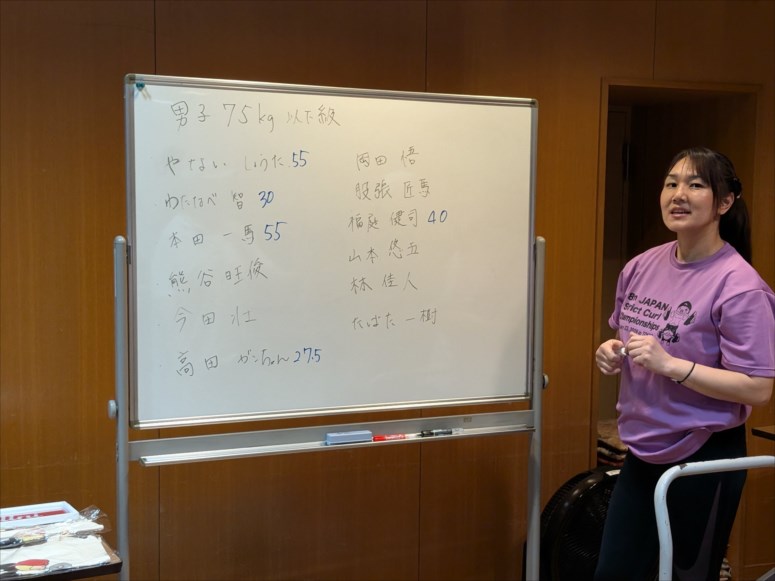 男子 75kg 以下級
やない しょうた 55
わたなべ 智 30
本田 一馬 55
熊谷 旺俊
今田 壮
高田 がっちゃん 27.5
岡田 悟
股張 匠馬
稲庭 健司 40
山本 悠五
林 佳人
たばた 一樹
JAPAN
Strict Curl
Championships